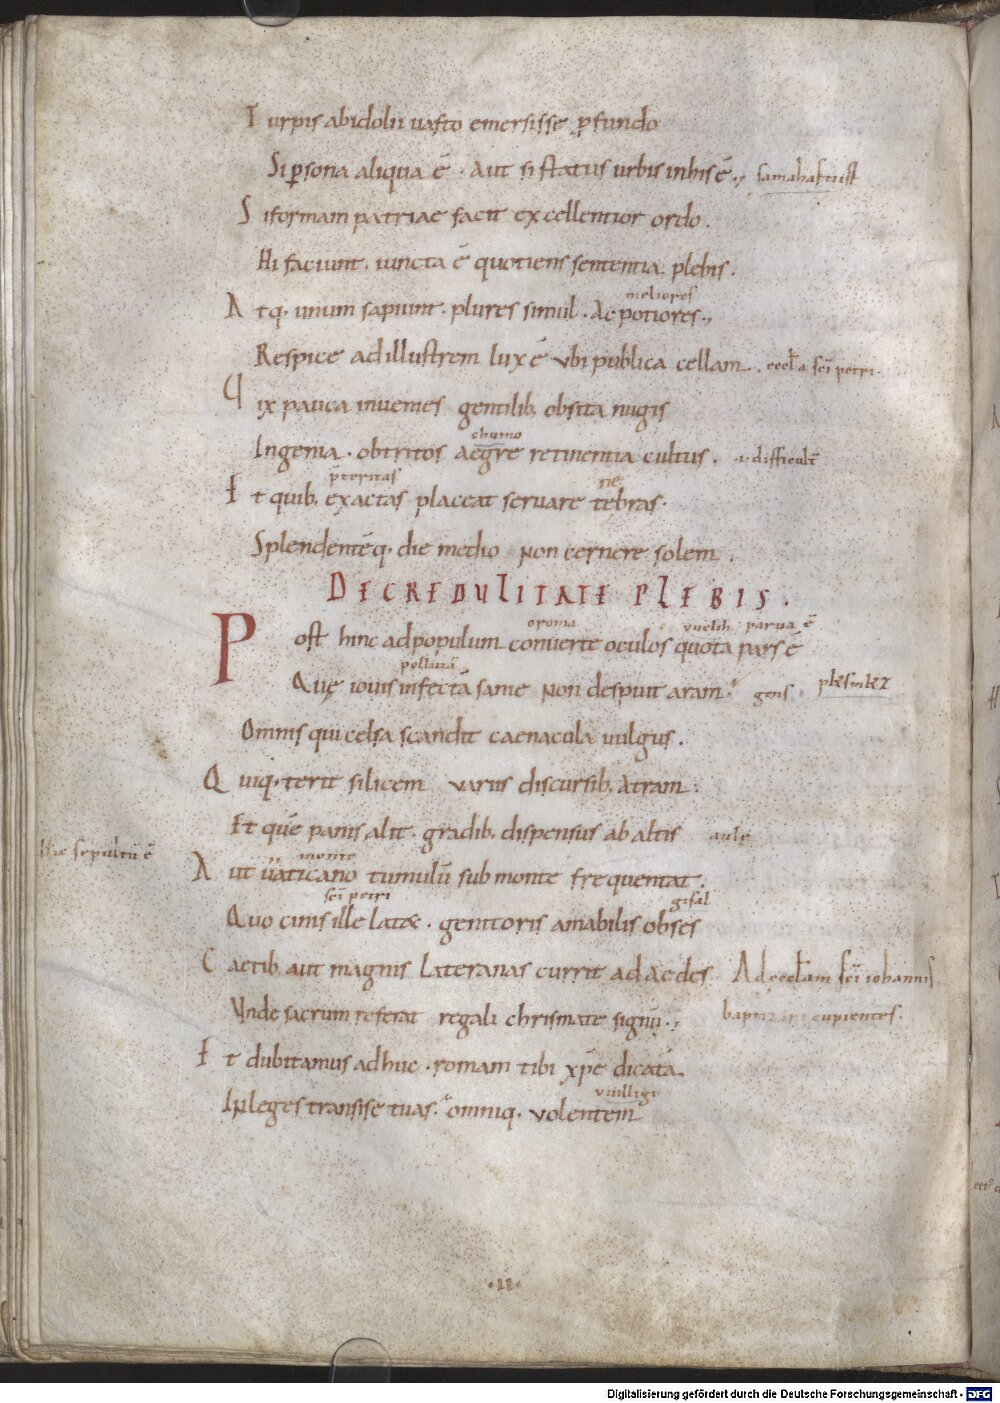 Turpis abidolii uasto emersisse pfundo
Si psona aliqua ē · Aut si status urbis inhis ē ·, samahaftiust
Siformam patriae facit excellentior ordo .
Hi faciunt · iuncta ē quotiens sententia plebis .
meliores
Atq· unum sapiunt · plures simul · Ac potiores ·,
Respice adillustrem lux ē ubi publica cellam . eccła sc̄i petri ·
Vix pauca inuenies gentilib; obsita nugis
chumo
Ingenia · obtritos aegre retinentia cultus . i · difficult̄
p̄teritas
ne
Et quib; exactas placeat seruare tebras ·
Splendentēq· die medio non cernere solem .
DE CREDULITATE PLEBIS .
oroma uuelih parua ē
Post hinc adpopulum conuerte oculos quota pars ē
pollutā
Quę iouis infectā sanie non despuit aram · gens · plksmkż
Omnis qui celsa scandit caenacula uulgus .
Quiq· terit silicem variis discursib; Atram .
Et quē panis alit · gradib; dispensus ab altis aulę
Hic sepultus ē
monte
Aut uaticano tumulū sub monte frequentat .
sc̄i petri gisal
Quo cinis ille latæ · genitoris amabilis obses
Caetib; aut magnis Lateranas currit ad Aedes Ad eccłam sc̄i iohannis
Vnde sacrum referat regali chrismate signū ·, baptizari cupientes .
Et dubitamus adhuc · romam tibi xp̄e dicatā .
uuilligi
In leges transisse tuas · omniq· volentem
· 22 ·
Digitalisierung gefördert durch die Deutsche Forschungsgemeinschaft - DFG